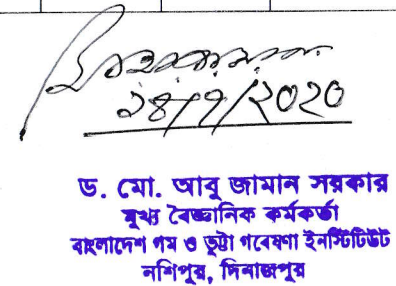 ২৪/৭/২০২০
ড. মো. আবু জামান সরকার
মুখ্য বৈজ্ঞানিক কর্মকর্তা
বাংলাদেশ গম ও ভুট্টা গবেষণা ইনস্টিটিউট
নশিপুর, দিনাজপুর